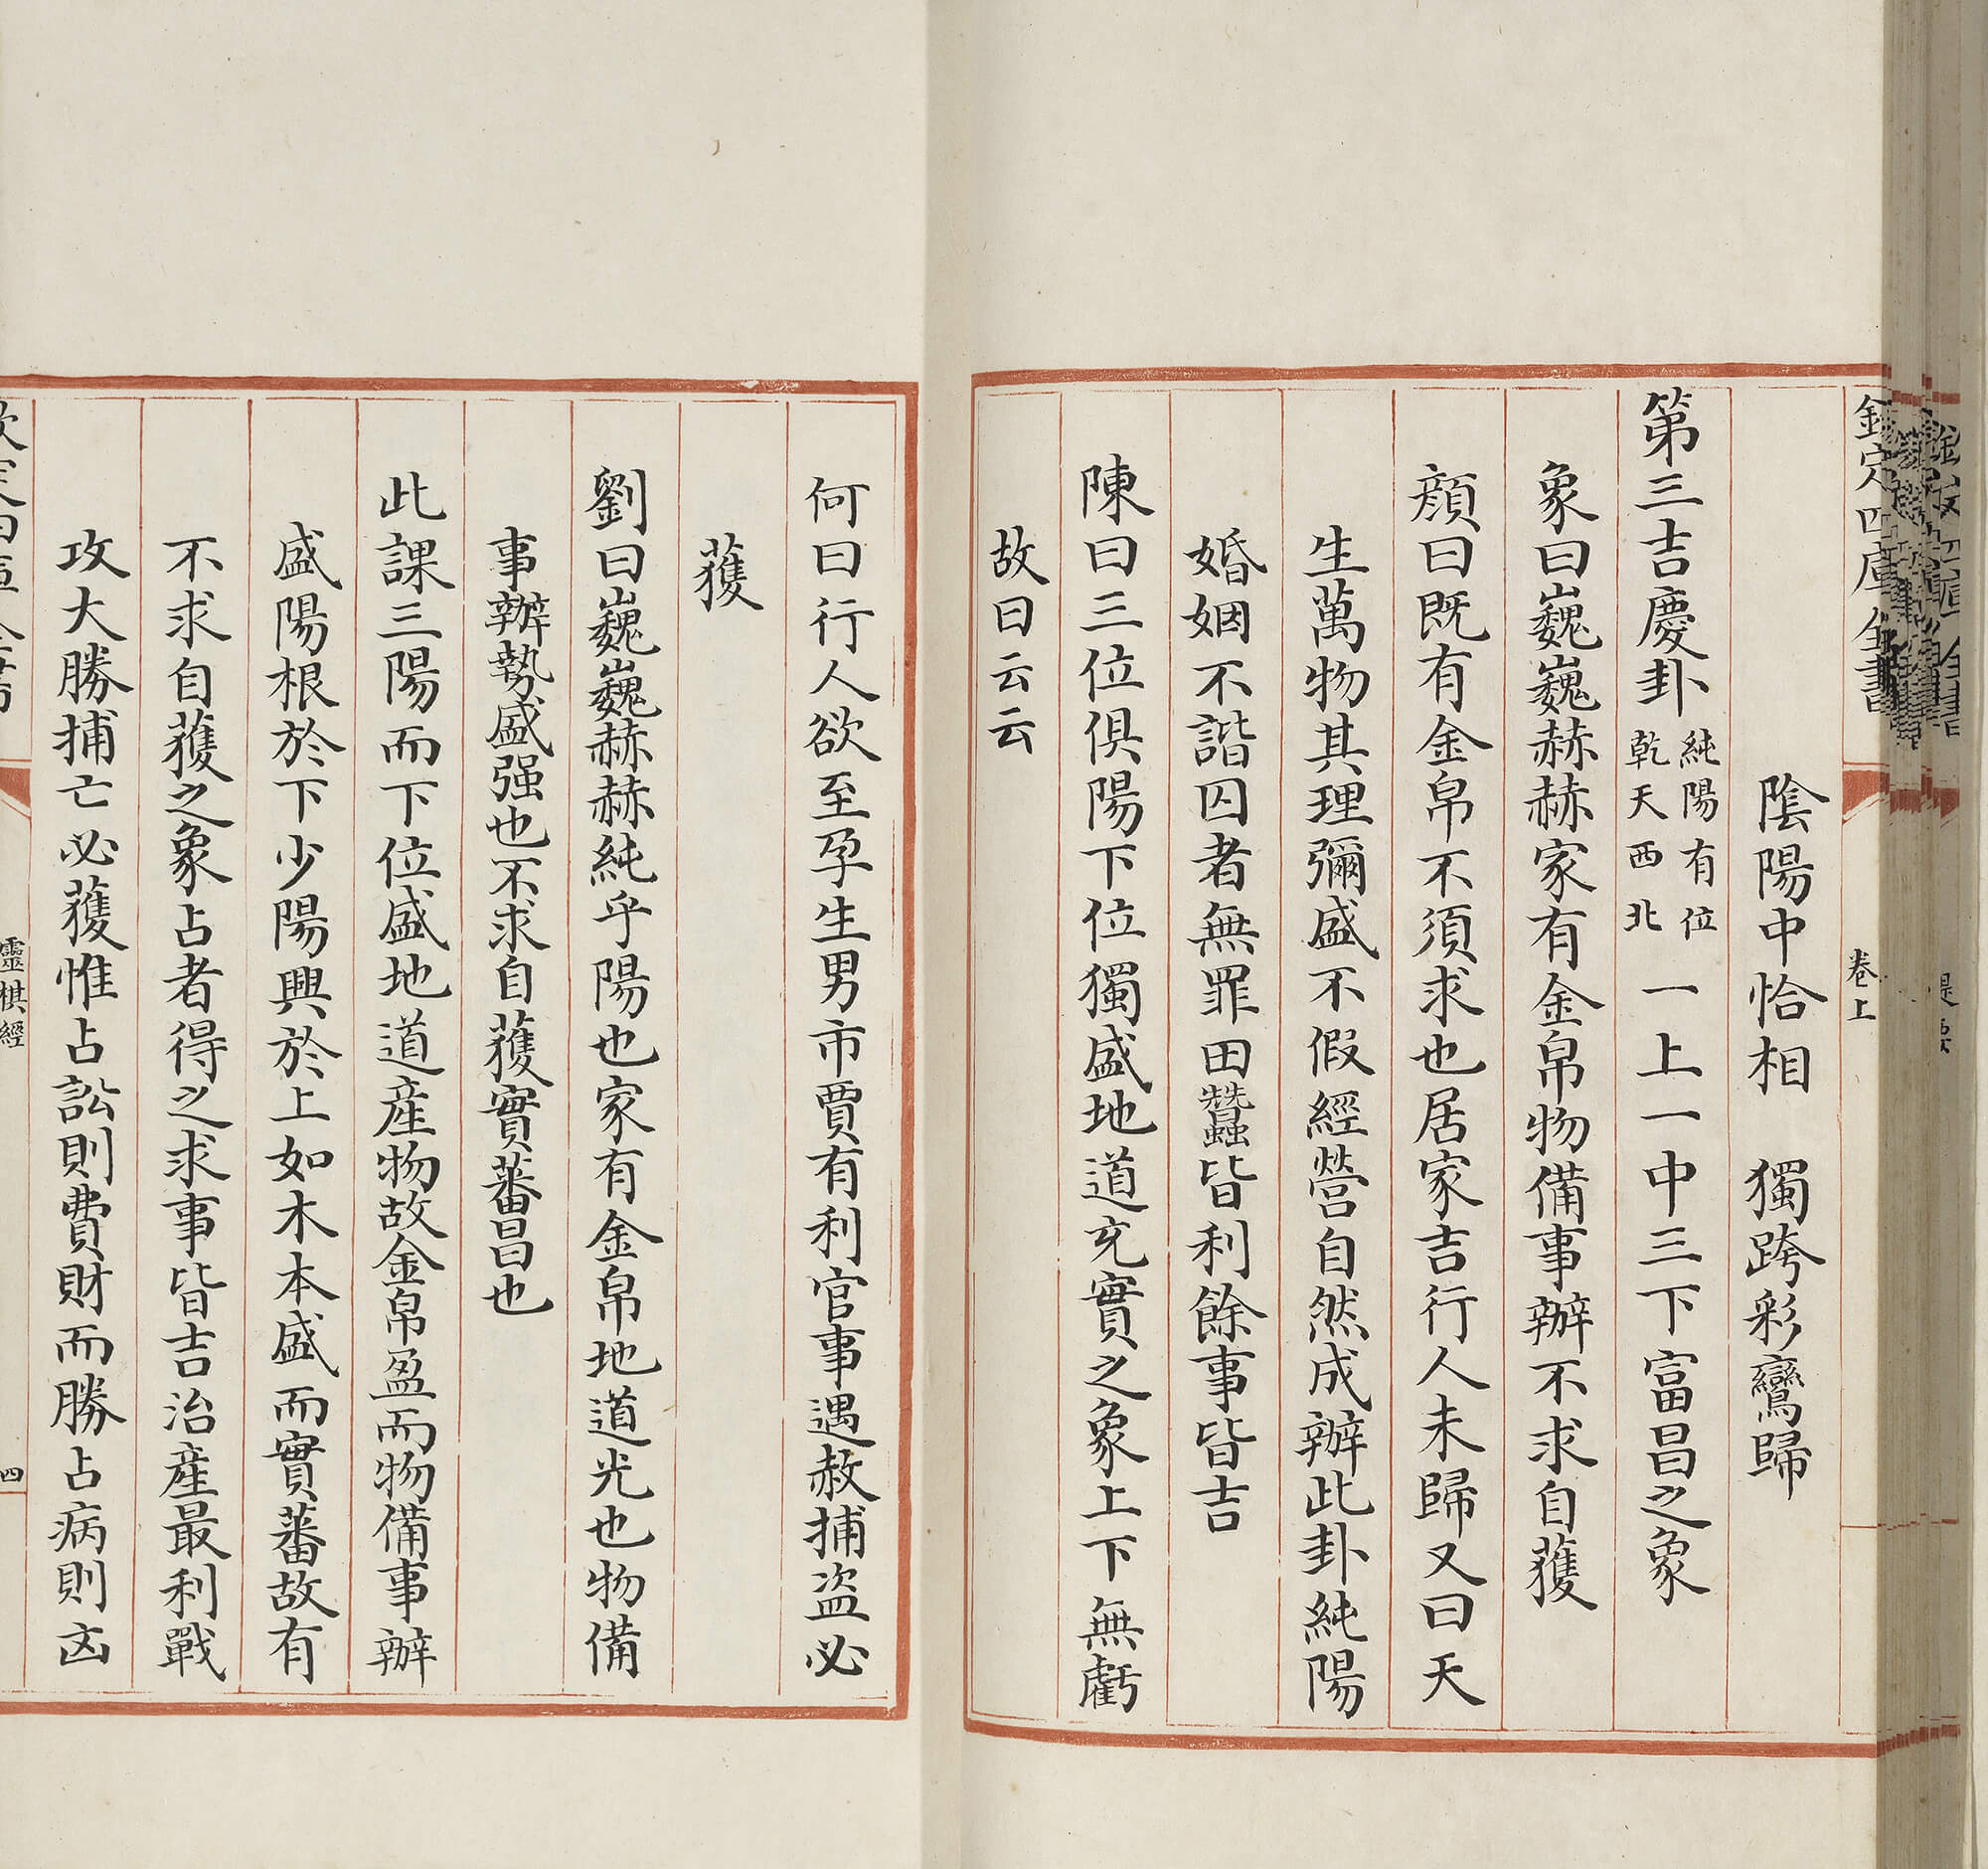 欽定四庫全書
卷上
陰陽中恰相　獨跨彩鸞歸
第三吉慶卦純陽有位乾天西北一上一中三下富昌之象
象曰巍巍赫赫家有金帛物備事辦不求自獲
顏曰既有金帛不須求也居家吉行人未歸又曰天
生萬物其理彌盛不假經營自然成辦此卦純陽
婚姻不諧囚者無罪田蠶皆利餘事皆吉
陳曰三位俱陽下位獨盛地道充實之象上下無虧
故曰云云
何曰行人欲至孕生男市賈有利官事遇赦捕盜必
獲
劉曰巍巍赫赫純乎陽也家有金帛地道光也物備
事辦勢盛强也不求自獲實蕃昌也
此課三陽而下位盛地道産物故金帛盈而物備事辦
盛陽根於下少陽興於上如木本盛而實蕃故有
不求自獲之象占者得之求事皆吉治産最利戰
攻大勝捕亡必獲惟占訟則費財而勝占病則凶
靈棋經
四